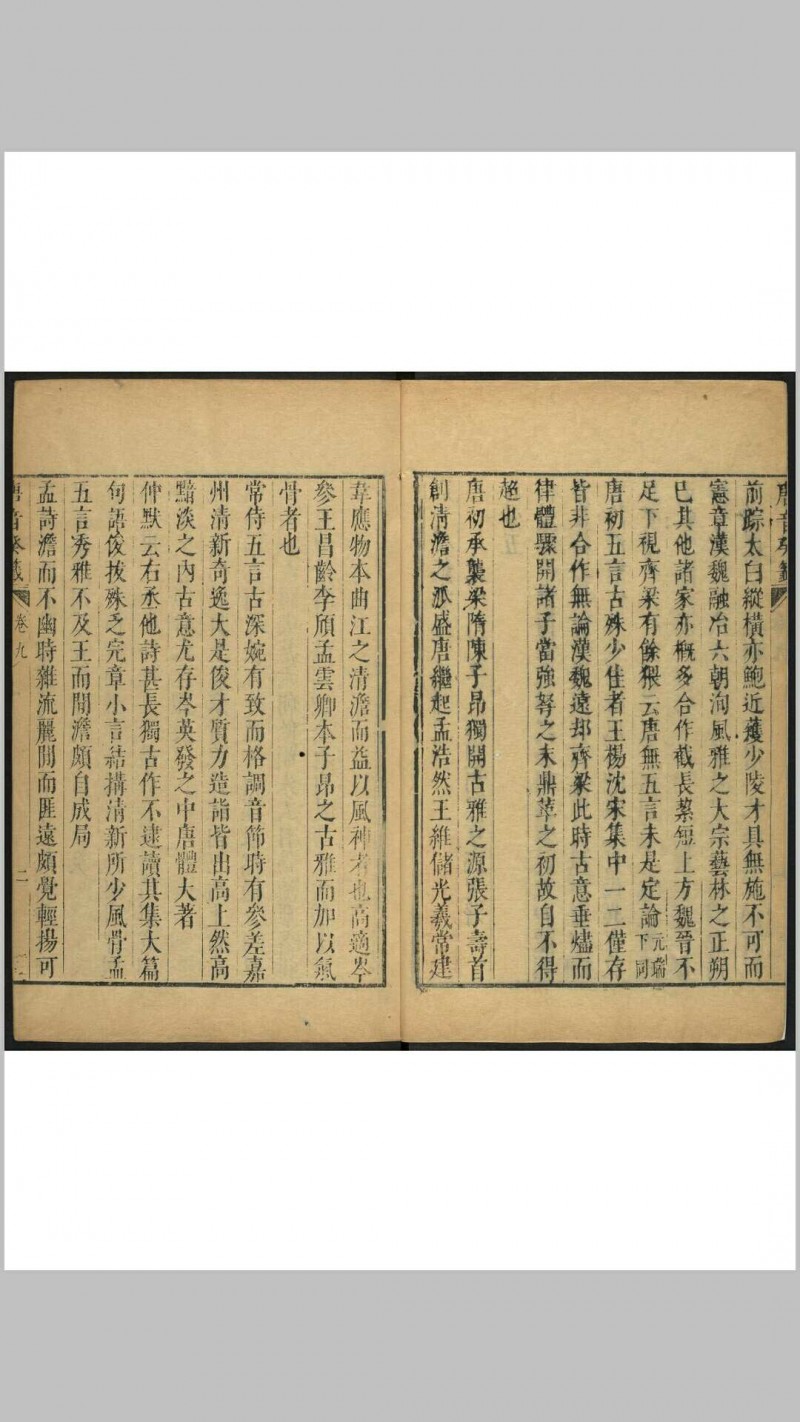 唐音癸籤
前踪太白縱橫亦鮑近蒦少陵才具無施不可而
憲章漢魏融冶六朝洵風雅之大宗藝林之正朔
已其他諸家亦概多合作截長絜短上方魏晉不
足下視齊梁有餘猥云唐無五言未是定論元瑞下同
唐初五言古殊少佳者王楊沈宋集中一二僅存
皆非合作無論漢魏遠却齊梁此時古意垂燼而
律體驟開諸子當強弩之末鼎革之初故自不得
超也
唐初承襲梁隋陳子昂獨開古雅之源張子壽首
創清澹之派盛唐繼起孟浩然王維儲光羲常建
韋應物本曲江之清澹而益以風神者也高適岑
參王昌齡李頎孟雲卿本子昂之古雅而加以氣
骨者也
常侍五言古深婉有致而格調音節時有參差嘉
州清新奇逸大是俊才質力造詣皆出高上然高
黯淡之內古意尤存岑英發之中唐體大著
仲默云右丞他詩甚長獨古作不逮讀其集大篇
句語俊拔殊乏完章小言結搆清新所少風骨孟
五言秀雅不及王而閒澹頗自成局
孟詩澹而不幽時雜流麗閒而匪遠頗覺輕揚可
唐音癸籤 卷九 二